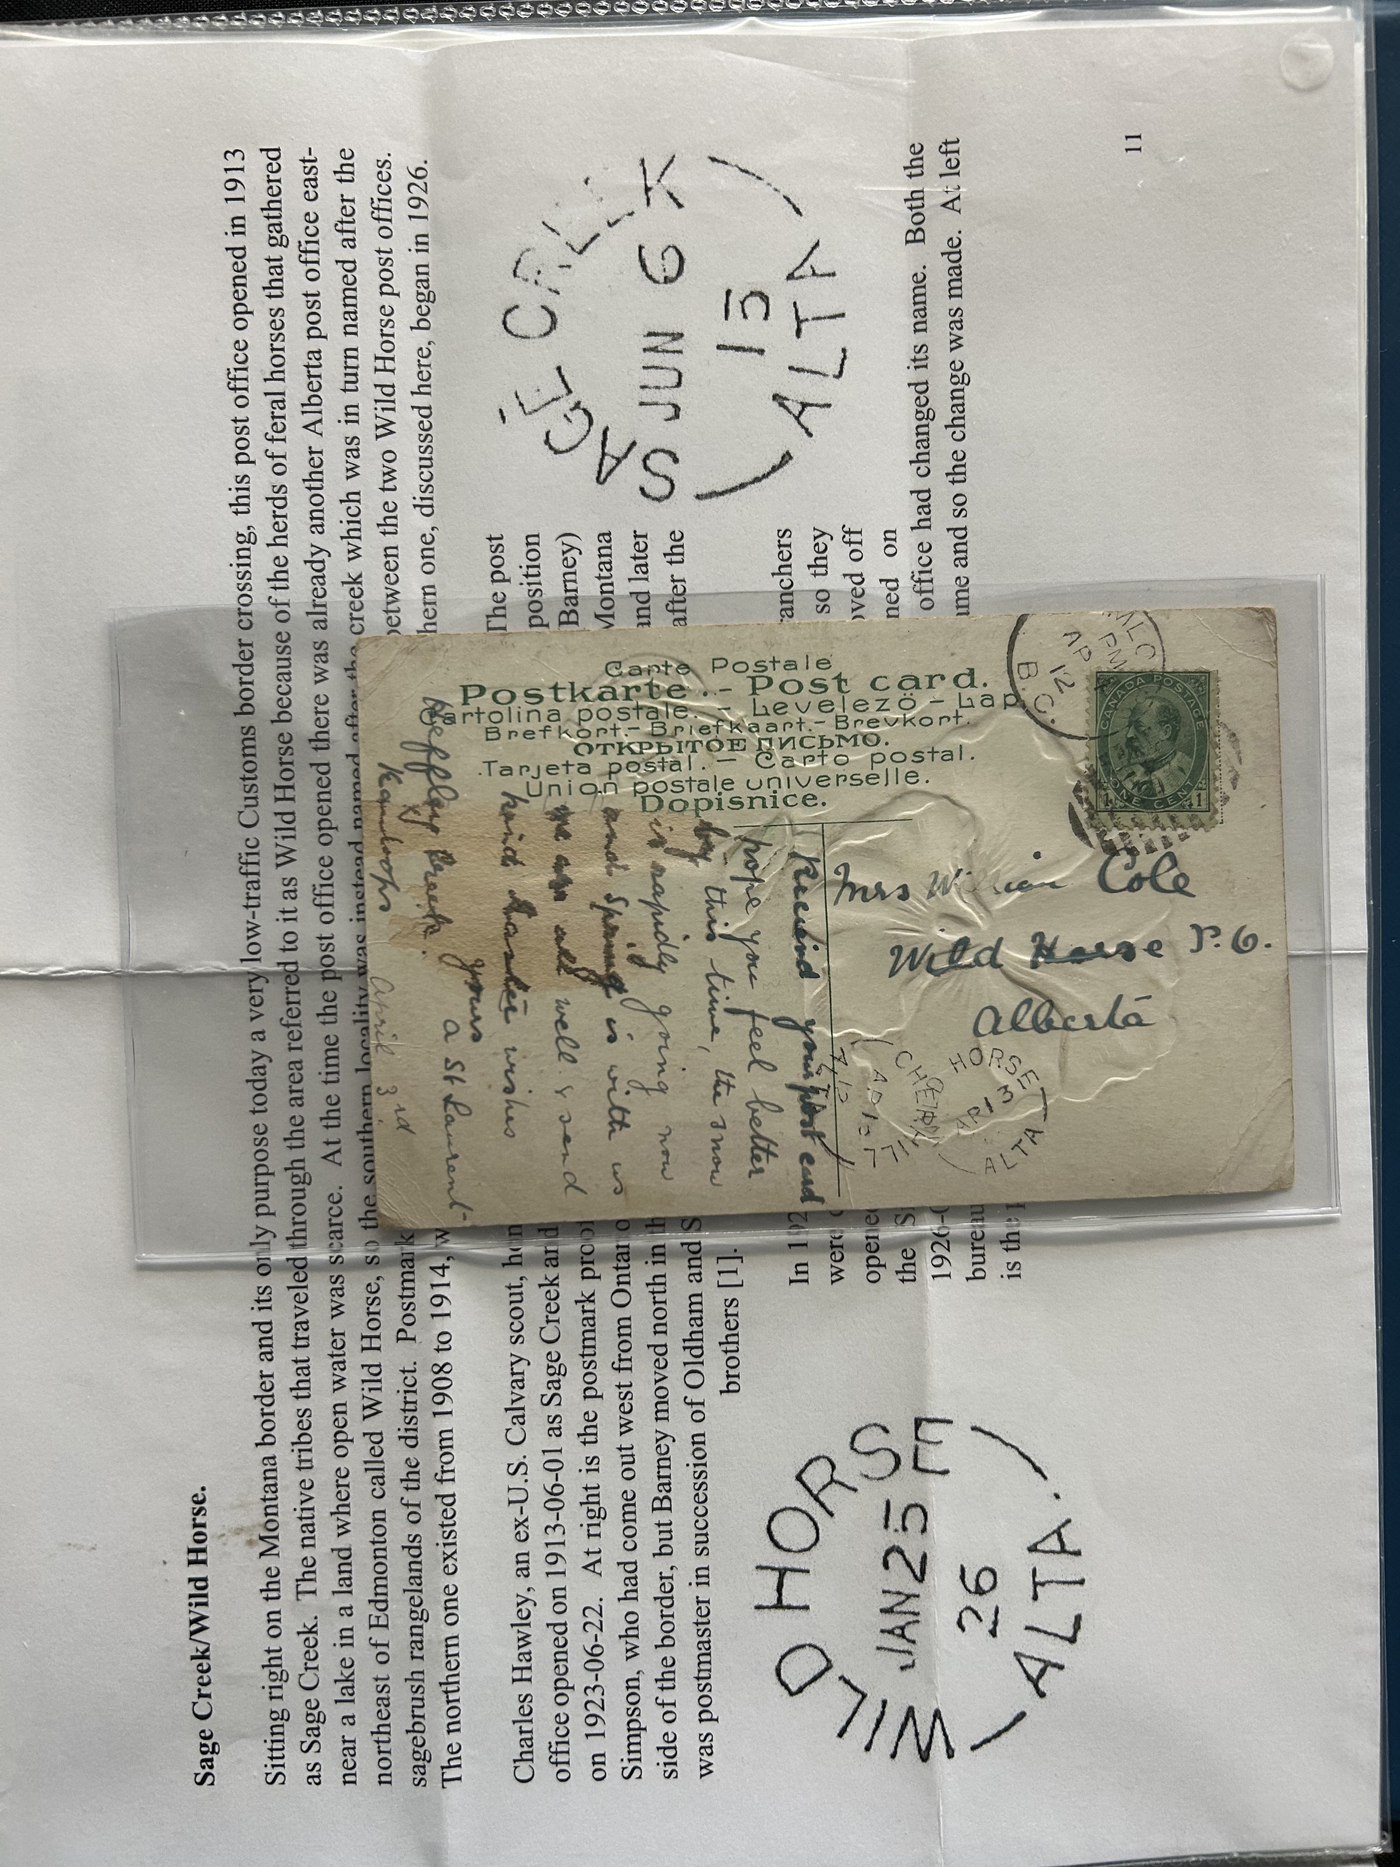 Sage Creek/Wild Horse.
Sitting right on the Montana border and its only purpose today a very low-traffic Customs border crossing, this post office opened in 1913
as Sage Creek. The native tribes that traveled through the area referred to it as Wild Horse because of the herds of feral horses that gathered
near a lake in a land where open water was scarce. At the time the post office opened there was already another Alberta post office east-
northeast of Edmonton called Wild Horse, so the southern locality was instead named after the creek which was in turn named after the
sagebrush rangelands of the district. Postmark between the two Wild Horse post offices.
The northern one existed from 1908 to 1914, w hern one, discussed here, began in 1926.
Charles Hawley, an ex-U.S. Calvary scout, hom The post
office opened on 1913-06-01 as Sage Creek and position
on 1923-06-22. At right is the postmark proo Barney)
Simpson, who had come out west from Ontar Montana
side of the border, but Barney moved north in th and later
was postmaster in succession of Oldham and S after the
brothers [1].
SAGE CREEK
JUN 6
13
ALTA
In 192 anchers
were so they
opened oved off
the S ned on
1926-0 office had changed its name. Both the
bureau ame and so the change was made. At left
is the p
WILD HORSE
JAN 25
26
ALTA.
11
Carte Postale
Postkarte. - Post card.
Cartolina postale. - Levelezö - Lap.
Brefkort.- Briefkaart.- Brevkort.
ОТКРЫТОЕ ПИСЬМО.
.Tarjeta postal. - Carto postal.
Union postale universelle.
Dopisnice.
PM
AP
12
B.C.
CANADA POSTAGE
ONE CENT
1 1
Mrs William Cole
Wild Horse P.O.
Alberta
HORSE
AP 13
ALTA
Heffley Creek.
Kamloops April 3rd
Received your post card
hope you feel better
by this time, the snow
is rapidly going now
and Spring is with us
we are all well & send
kind Easter wishes
yours